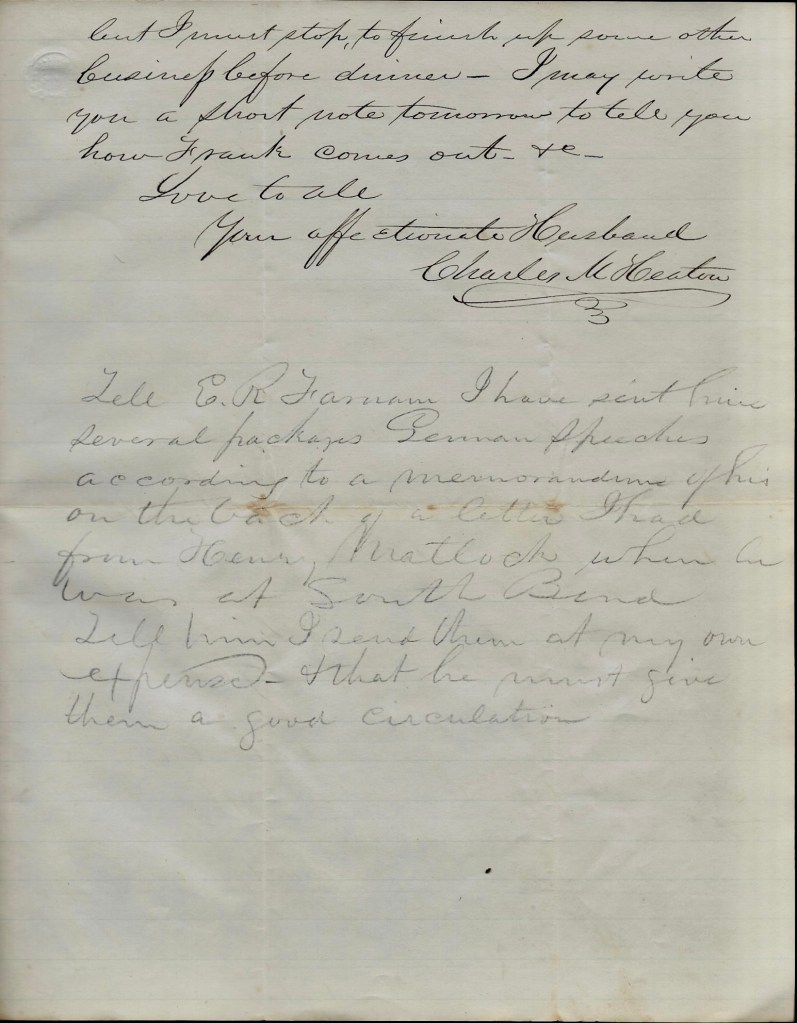 but I must stop, to finish up some other
business before dinner – I may write
you a short note tomorrow to tell you
how Frank comes out – &c –
Love to all
Your affectionate Husband
Charles M Heaton
Tell E. R Farnam I have sent him
several packages German Speeches
according to a memorandum of his
on the back of a letter I had
from Henry Matlock when he
was at South Bend
Tell him I send them at my own
expense – & that he must give
them a good circulation